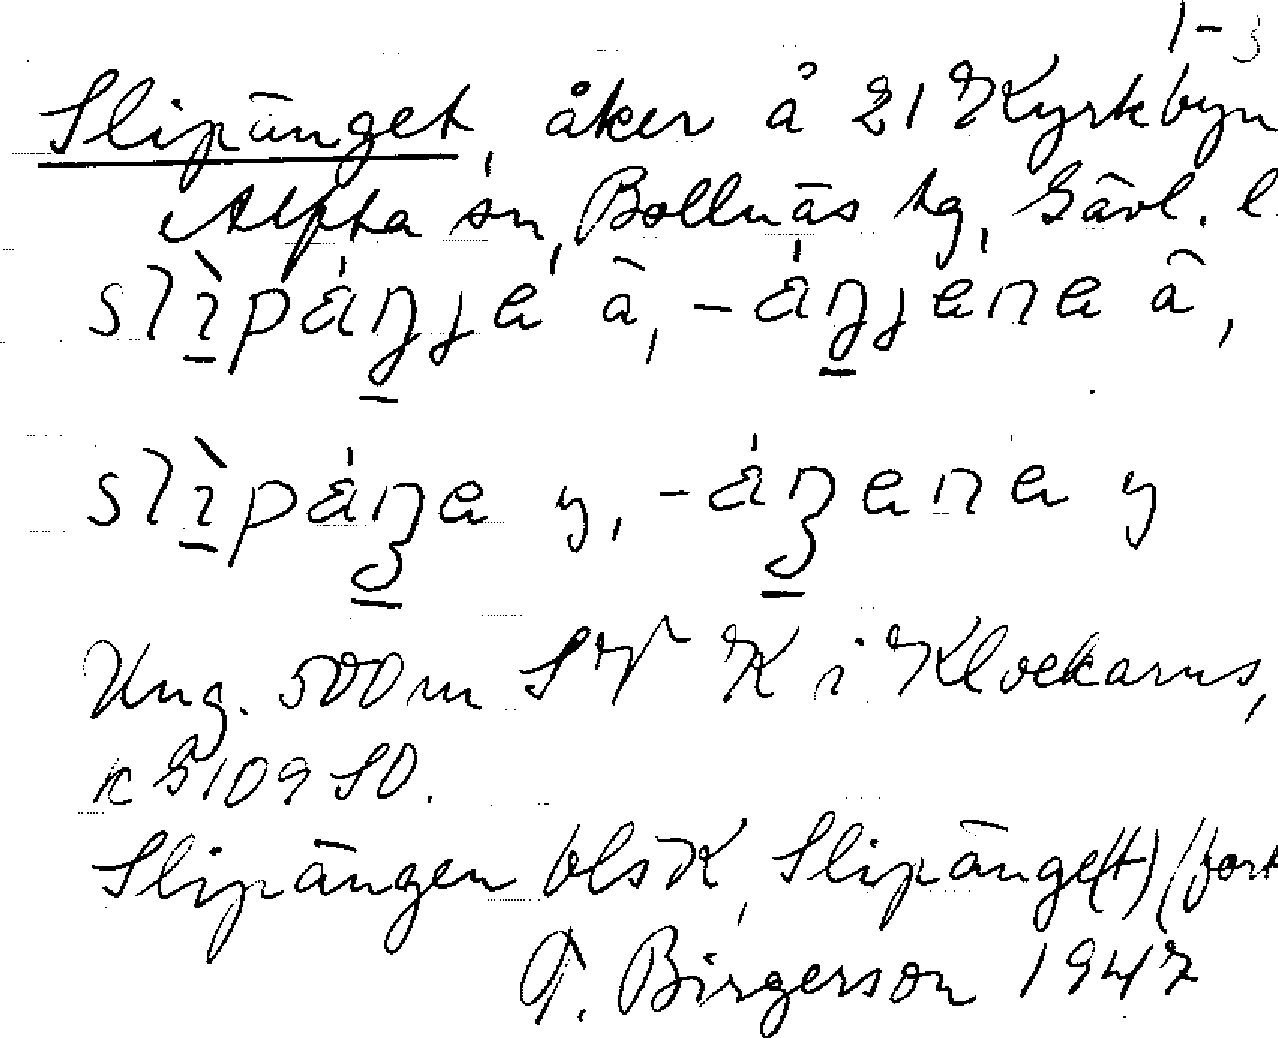 1-3
Slipänget, åker å 21 Kyrkbyn
Alfta sn, Bollnäs tg, Gävl. l.
slìpáŋja ā, -áŋjena ā,
slìpáŋa y, -áŋena y
Ung. 500 m SV K i Klockarns,
k 5109 SO.
Slipängen blsK, Slipänge(t) (fort
G. Birgerson 1947